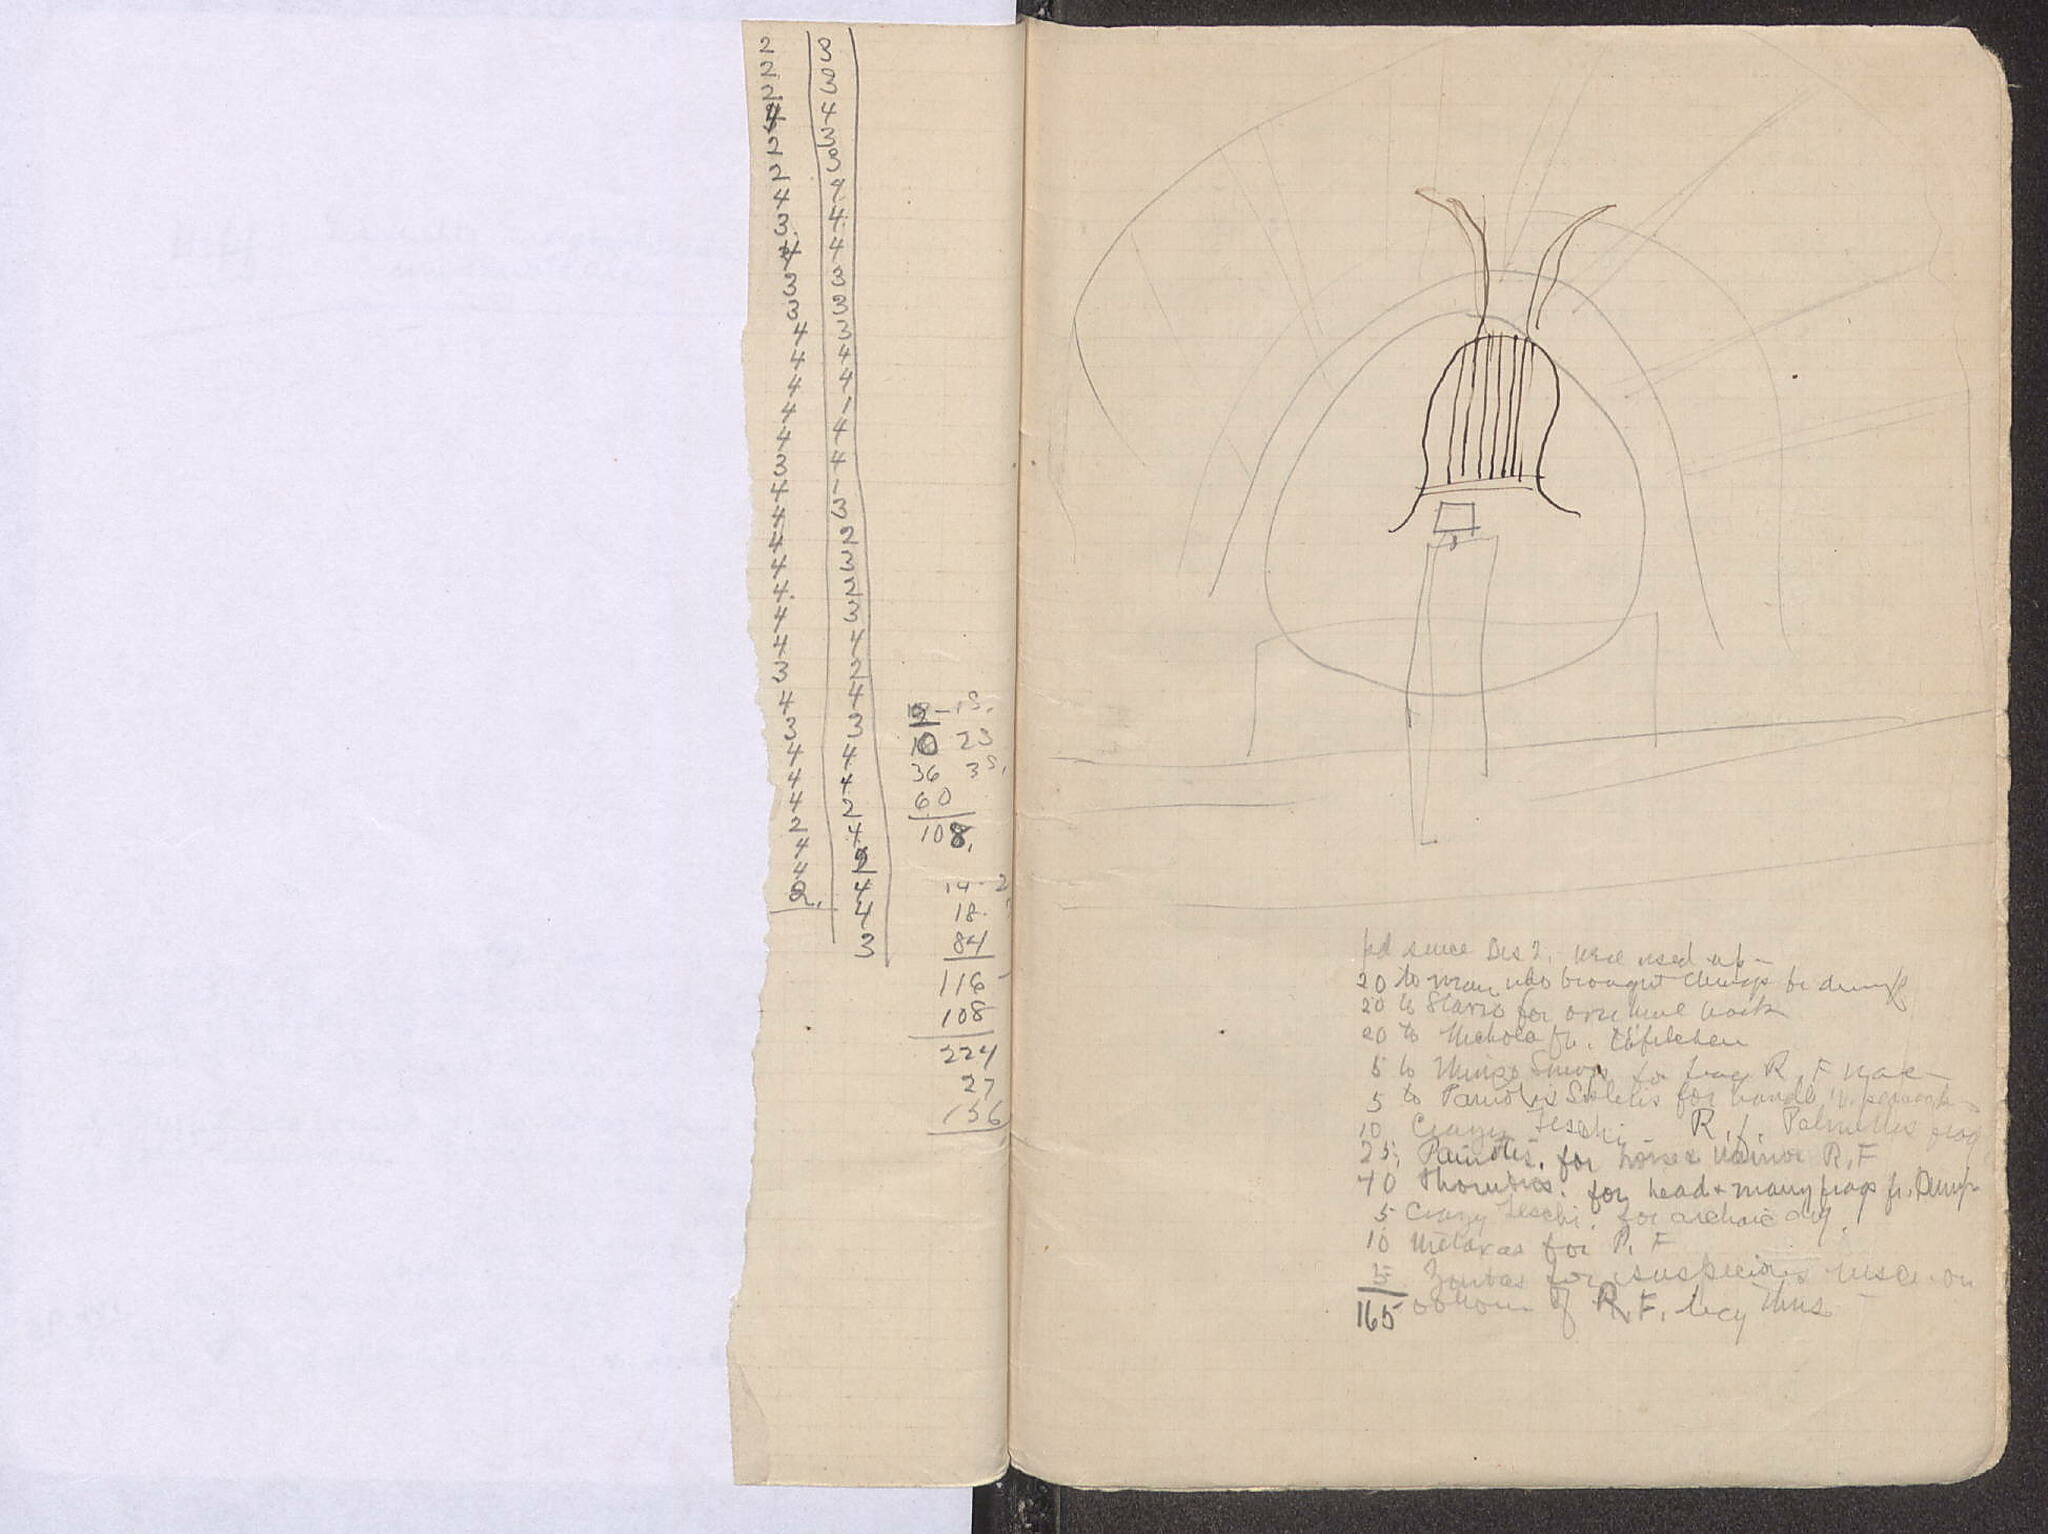 2
2
2
4
2
2
4
3
4
3
3
4
4
4
4
4
3
4
4
4
4
4
4
4
3
4
3
4
4
4
2
4
4
2
3
3
4
3
3
4
4
4
3
3
3
4
4
1
4
4
1
3
2
3
2
3
4
2
4
3
4
4
2
4
2
4
4
3
10 23
36
60
108
18
84
116
108
224
27
156
pd since Dec 2. were used up
20 to man who brought things fr dump
20 to Stavro for overtime work
20 to Nichola fr.
5 to for frag R. F vase
5 to Panotis for handle
10 Crazy R. f. Palmettes frag
25, Panotis, for horse & R. F
40 Thombros. for head & many frags fr. Dump
5 Crazy for archaic
10 Metaxas for R. F
5 for suspicious on
165 bottom of R. F. lecythus